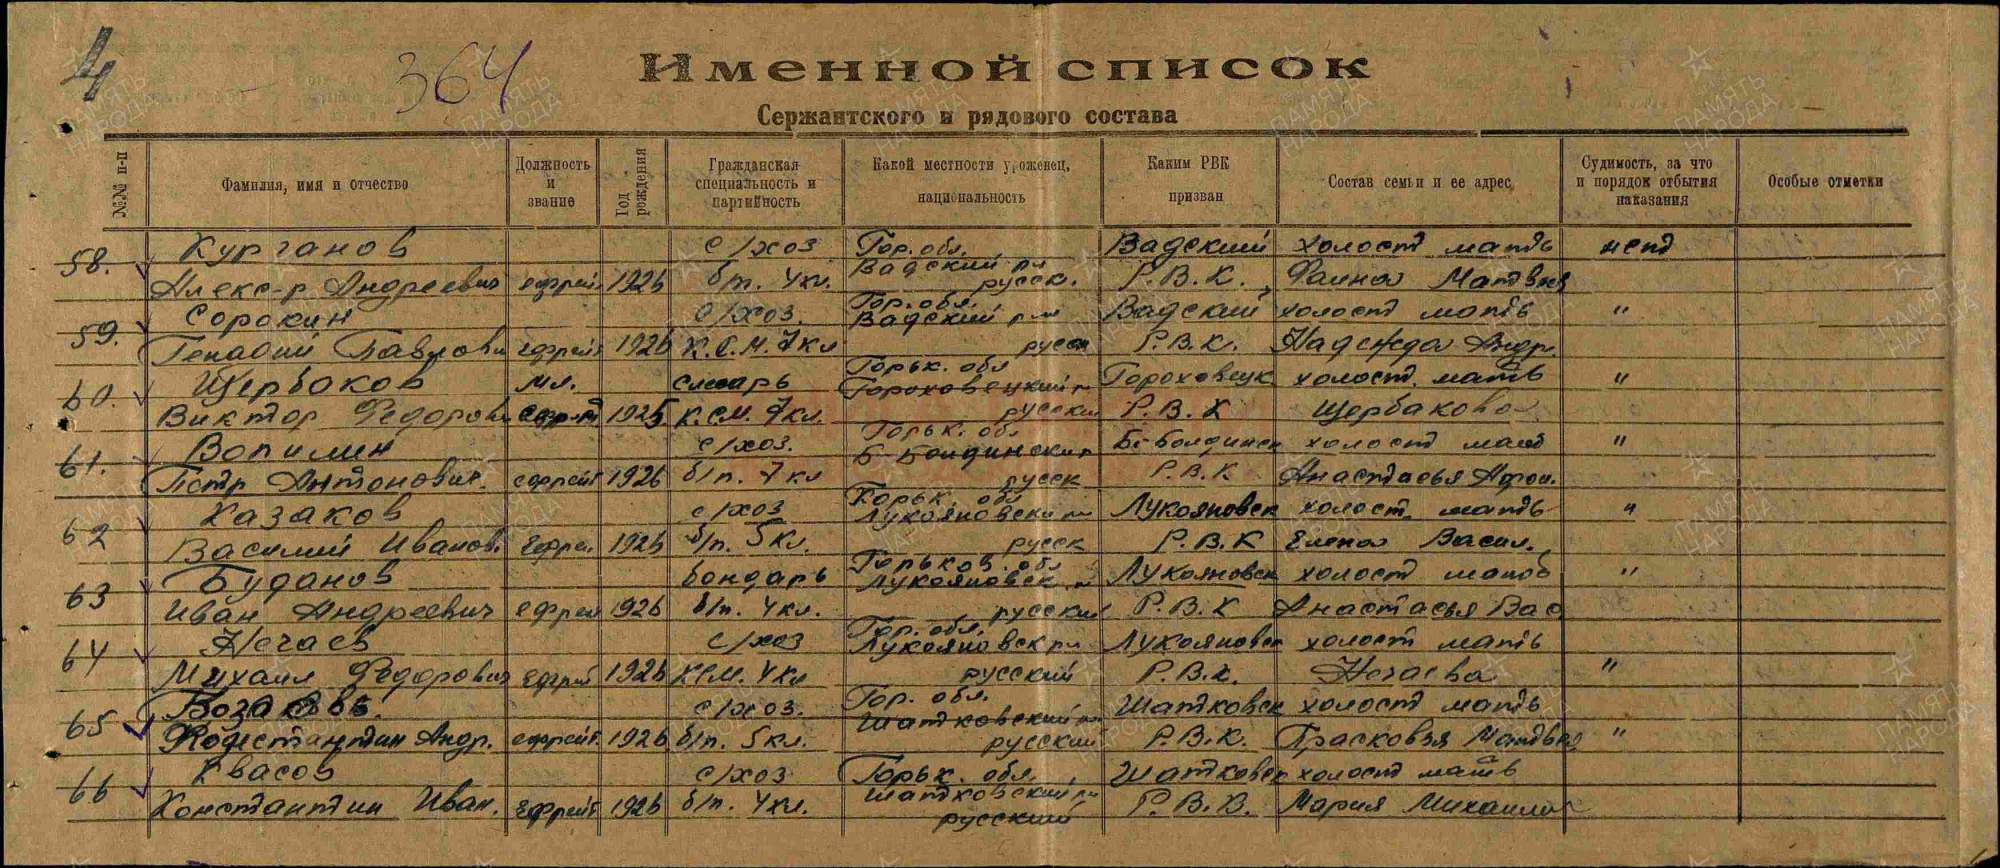 4
364
Именной список
Сержантского и рядового состава
№№ п-п
Фамилия, имя и отчество
Должность и звание
Год рождения
Гражданская специальность и партийность
Какой местности уроженец, национальность
Каким РВК призван
Состав семьи и ее адрес
Судимость, за что и порядок отбытия наказания
Особые отметки
58. Курганов с/хоз Гор. обл. Вадский холост мать нет
Вадский р-н
Алекс-р Андреевич ефрей 1926 б/п. 4кл. русск. Р.В.К. Матвея
59. Сорокин с/хоз. Гор. обл. Вадский холост мать "
Вадский р-н
Генадий Павлови Ефрей 1926 К.С.М. 7кл русск Р.В.К. Надежда Андр.
60. Щербаков мл. слесарь Горьк. обл Гороховецк холост. мать "
Гороховецкий р
Виктор Федорови 1925 К.СМ. 7кл. русский Р.В.К Щербакова
61. Вопилин с/хоз. Горьк. обл Б-Болдинск холост мать "
Б-Болдински р
Петр Антонович. ефрейт 1926 б/п. 7кл русск Р.В.К Анастасья
62 Казаков с/хоз Горьк. обл Лукояновск холост. мать "
Лукояновски р-н
Василий Иванов. Ефрей 1926 б/п. 5кл. русск Р.В.К Елена Васил.
63 Буданов бондарь Горьков. обл Лукояновск холост мать "
Лукояновск р
Иван Андреевич ефрей 1926 б/п. 4кл. русский Р.В.К Анастасья Вас
64 Нечаев с/хоз Гор. обл. Лукояновск холост мать
Лукояновск р-н
Михаил Федорович Ефрей 1926 КСМ. 4кл русский Р.В.К. Нечаева "
65 с/хоз. Гор. обл. Шатковск холост мать
Шатковский р-н
Константин Андр. ефрейт 1926 б/п. 5кл. русский Р.В.К. Прасковья Матвея "
66 Квасов с/хоз Горьк. обл. Шатковск холост мать
Шатковский р-н
Константин Иван. Ефрейт 1926 б/п. 4кл. русский Р.В.К. Мария Михайлов
ПАМЯТЬ НАРОДА